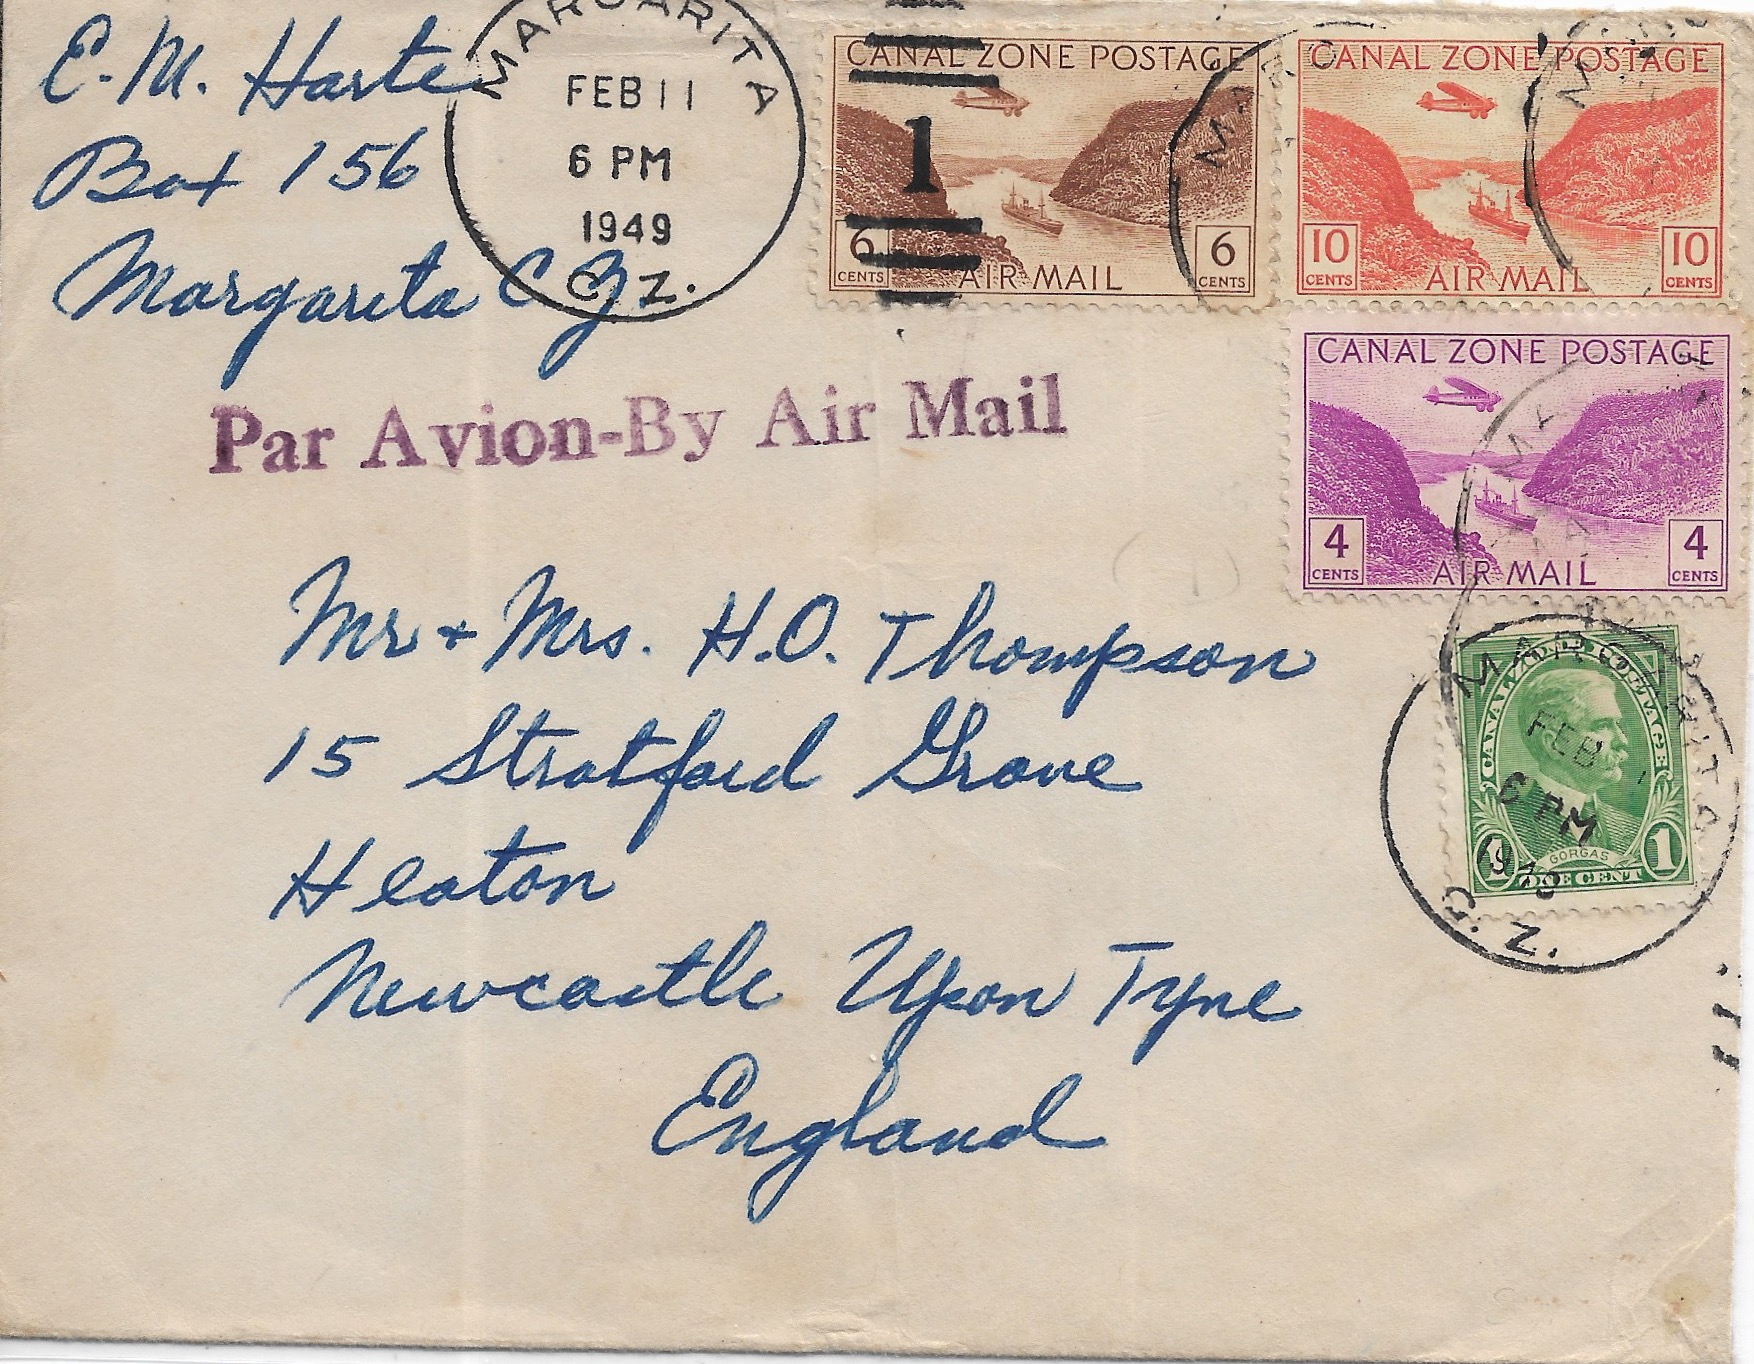 E. M. Harte
Box 156
Margarita C Z.
MARGARITA
FEB 11
6 PM
1949
C. Z.
1
CANAL ZONE POSTAGE
6 CENTS
AIR MAIL
6 CENTS
CANAL ZONE POSTAGE
10 CENTS
AIR MAIL
10 CENTS
Par Avion-By Air Mail
CANAL ZONE POSTAGE
4 CENTS
AIR MAIL
4 CENTS
Mr + Mrs. H.O. Thompson
15 Stratford Grove
Heaton
Newcastle Upon Tyne
England
CANAL ZONE POSTAGE
GORGAS
1 ONE CENT 1
MARGARITA
FEB
6 PM
1949
C. Z.